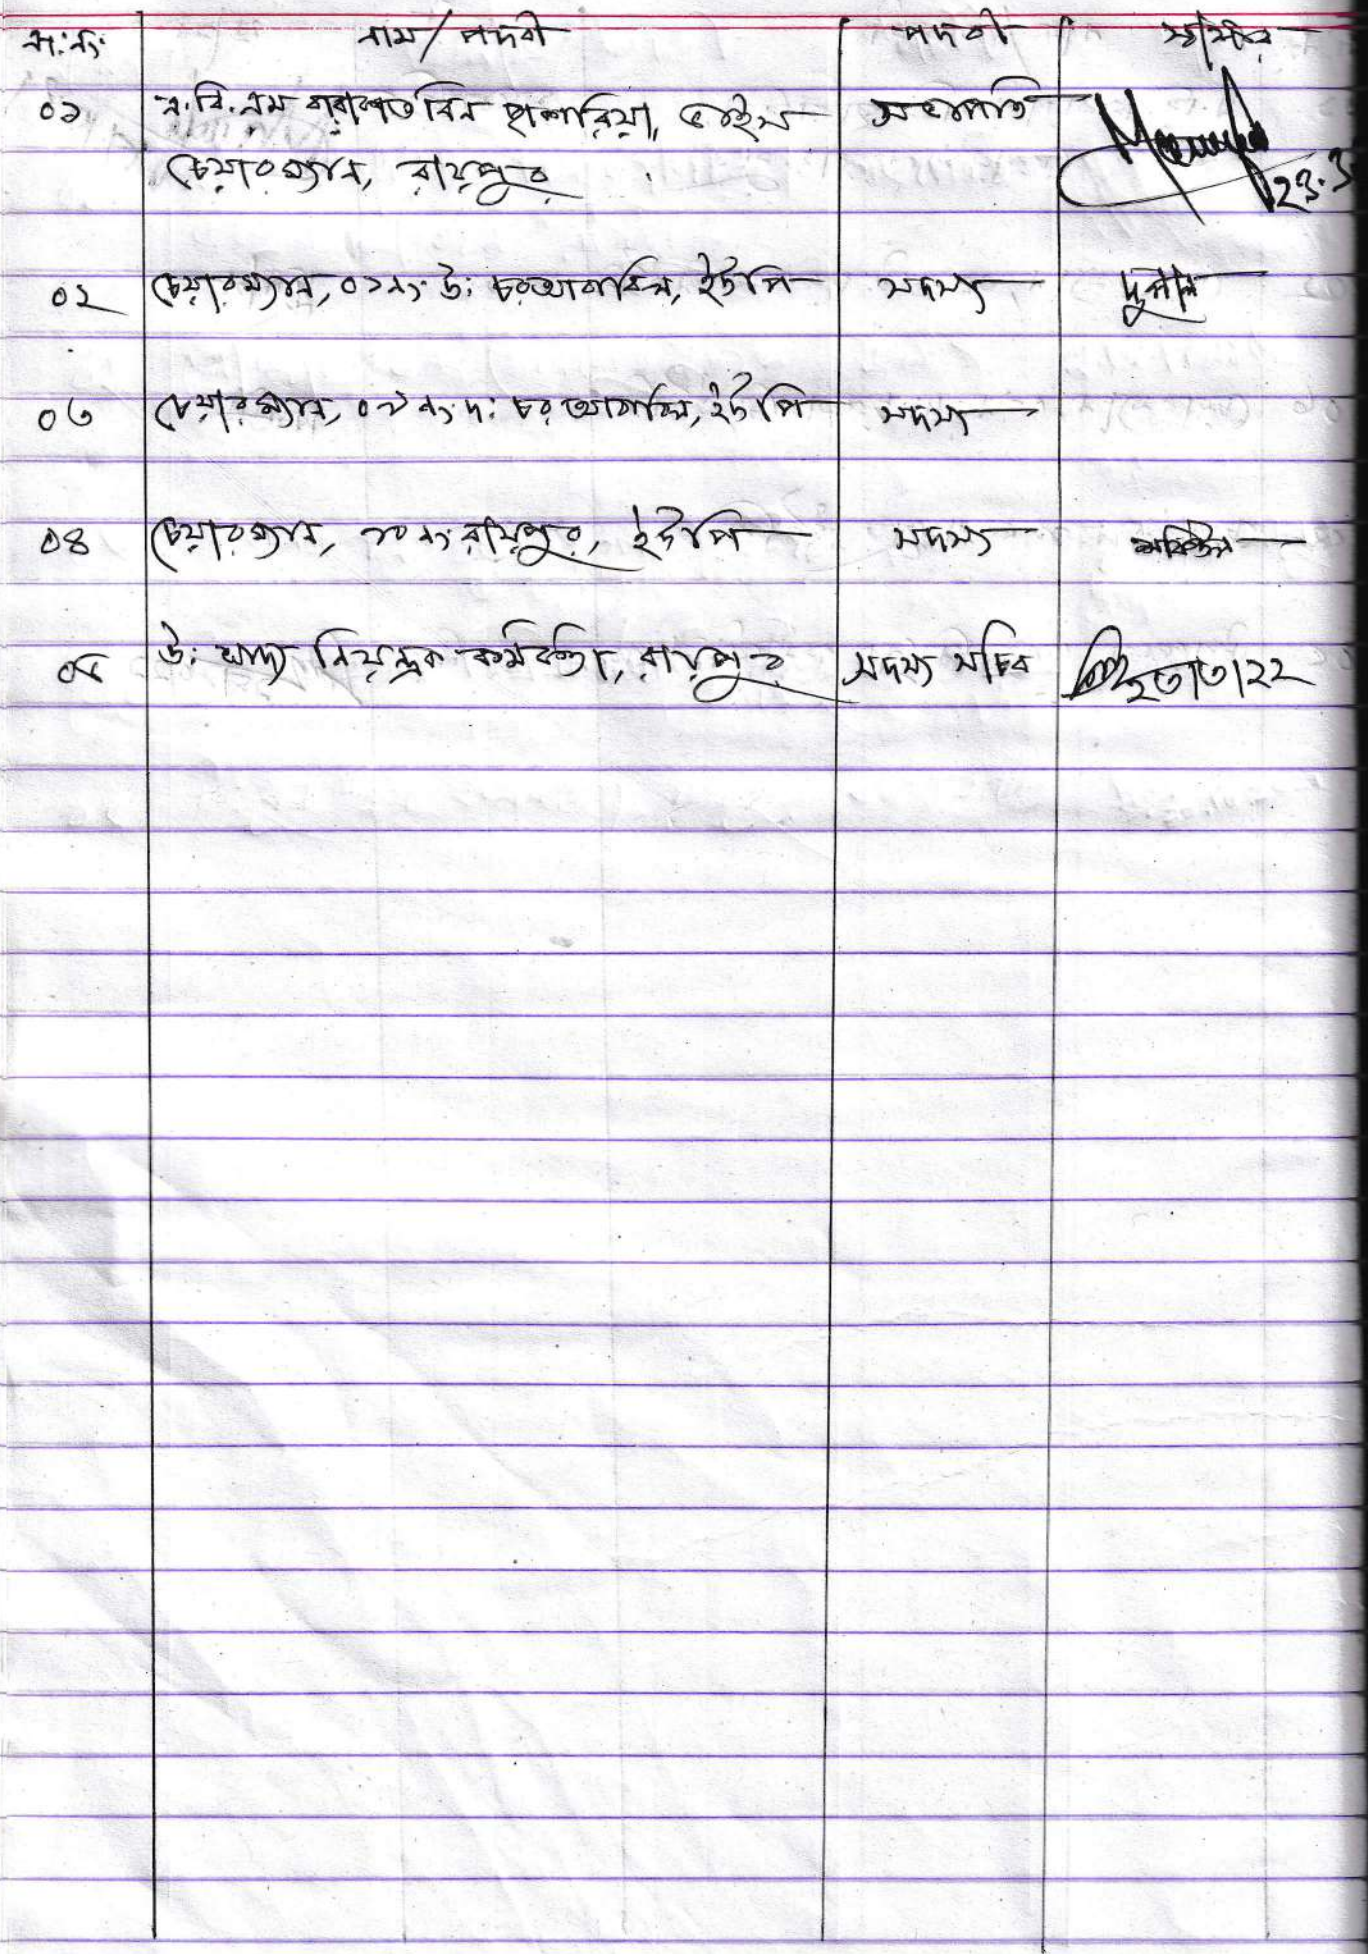 ক্র:নং নাম/পদবী পদবী স্বাক্ষর
০১ এ.বি.এম মারুফ বিন জাকারিয়া, ভাইস সভাপতি
চেয়ারম্যান, রায়পুর 23.3
০২ চেয়ারম্যান, ০১নং উ: চরআবাবিল, ইউপি সদস্য দুলাল
০৩ চেয়ারম্যান, ০৮নং দ: চর আবাবিল, ইউপি সদস্য
০৪ চেয়ারম্যান, ১০ নং রায়পুর, ইউপি সদস্য
০৫ উ: খাদ্য নিয়ন্ত্রক কর্মকর্তা, রায়পুর সদস্য সচিব ২৩/৩/২২